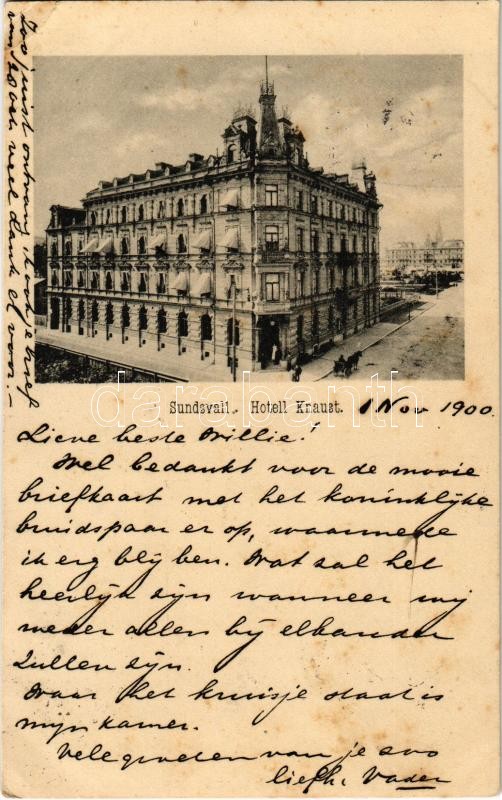 Zoo juist ontvang ik ook je brief
van 28 Oct veel dank er voor! -
Sundsvall. Hotell Knaust. 1 Nov 1900.
Lieve beste Willie!
Wel bedankt voor de mooie
briefkaart met het koninklijke
bruidspaar er op, waarmede
ik erg blij ben. Wat zal het
heerlijk zijn wanneer wij
weder allen bij elkander
zullen zijn.
Waar het kruisje staat is
mijn kamer.
Vele groeten van je zoo
liefh. Vader
darabanth